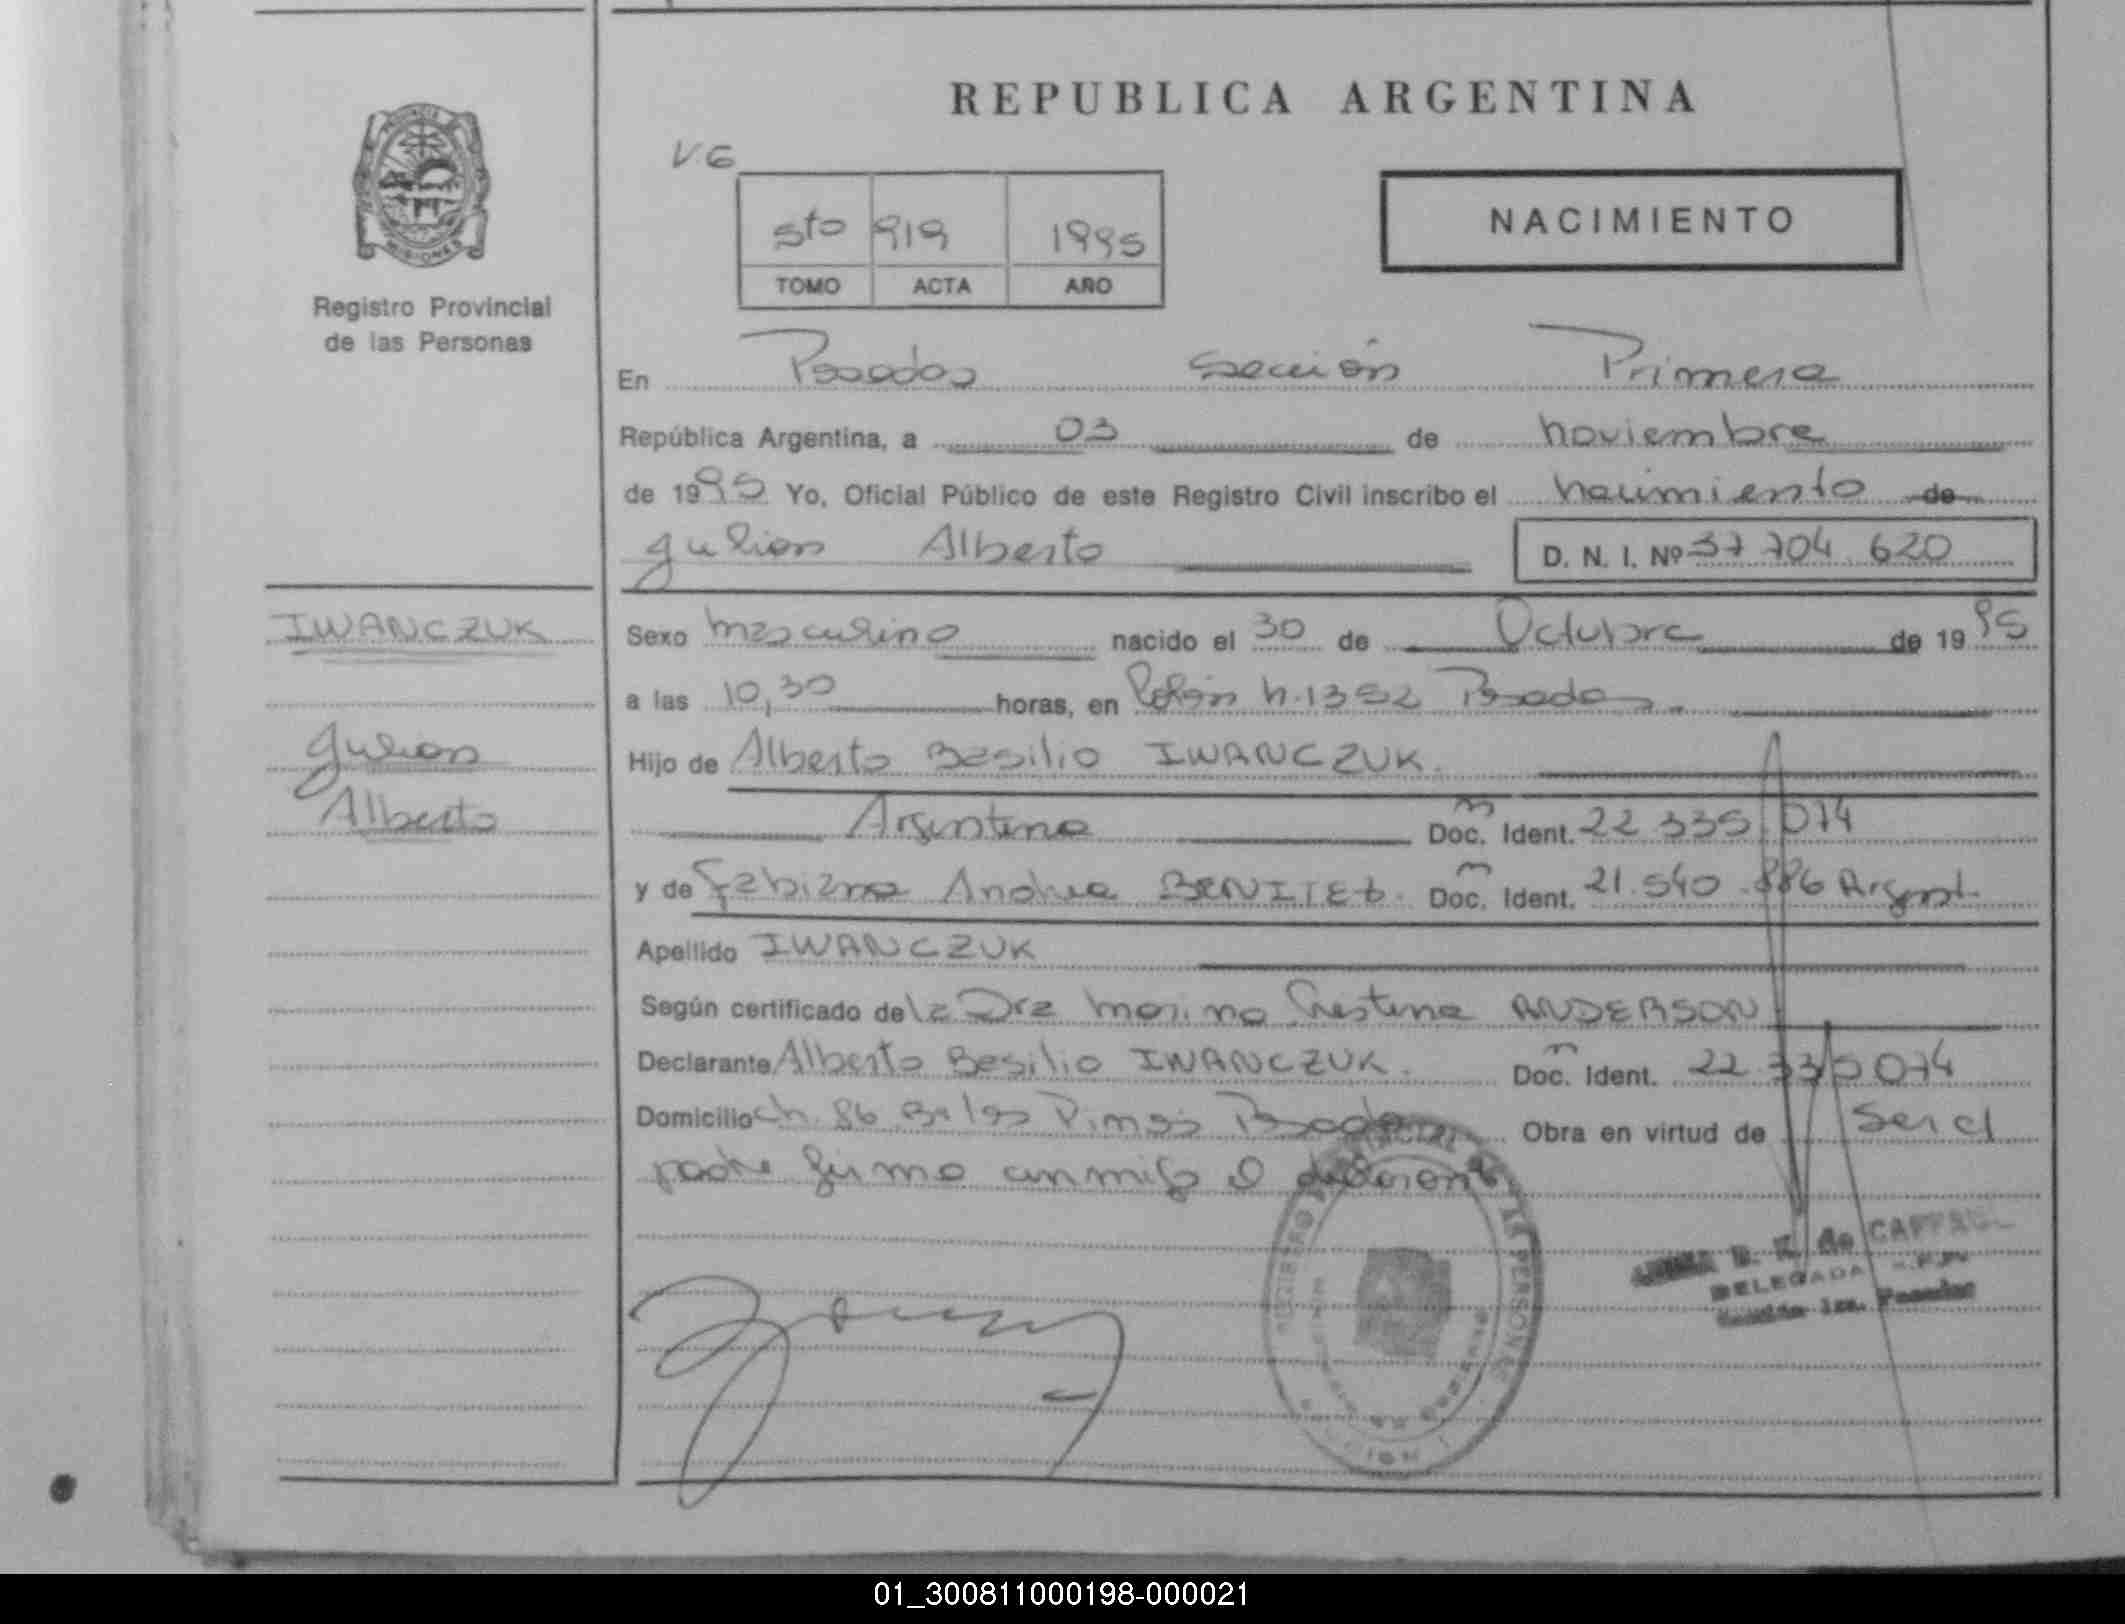 REPUBLICA ARGENTINA
MISIONES
Registro Provincial
de las Personas
V6
5to 919 1995
TOMO ACTA AÑO
NACIMIENTO
En Posadas Sección Primera
República Argentina, a 03 de noviembre
de 1995 Yo, Oficial Público de este Registro Civil inscribo el nacimiento de
Julian Alberto D. N. I. Nº 37 704 620
IWANCZUK
Julian
Alberto
Sexo masculino nacido el 30 de Octubre de 1995
a las 10,30 horas, en Colón n. 1352 Posadas.
Hijo de Alberto Basilio IWANCZUK.
Argentino Doc. Ident. 22 335 074
y de Fabiana Andrea BENITEZ. Doc. Ident. 21.540.886 Argent.
Apellido IWANCZUK
Según certificado de la Dra Cristina ANDERSON
Declarante Alberto Basilio IWANCZUK. Doc. Ident. 22 335 074
Domicilio Ch. 86 Posadas Obra en virtud de Ser el
padre firma conmigo el declarante
DE LAS PERSONAS
de CAFFAREL
DELEGADA
Sección 1ra. Posadas
01_300811000198-000021